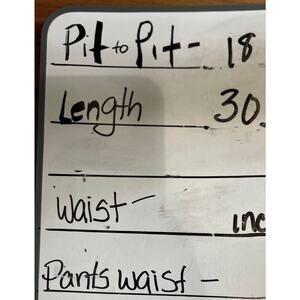 Pit to Pit - 18
Length 30
Waist - inc
Pants waist -